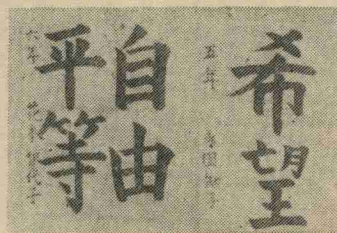 希望
五年
自由
平等
六年